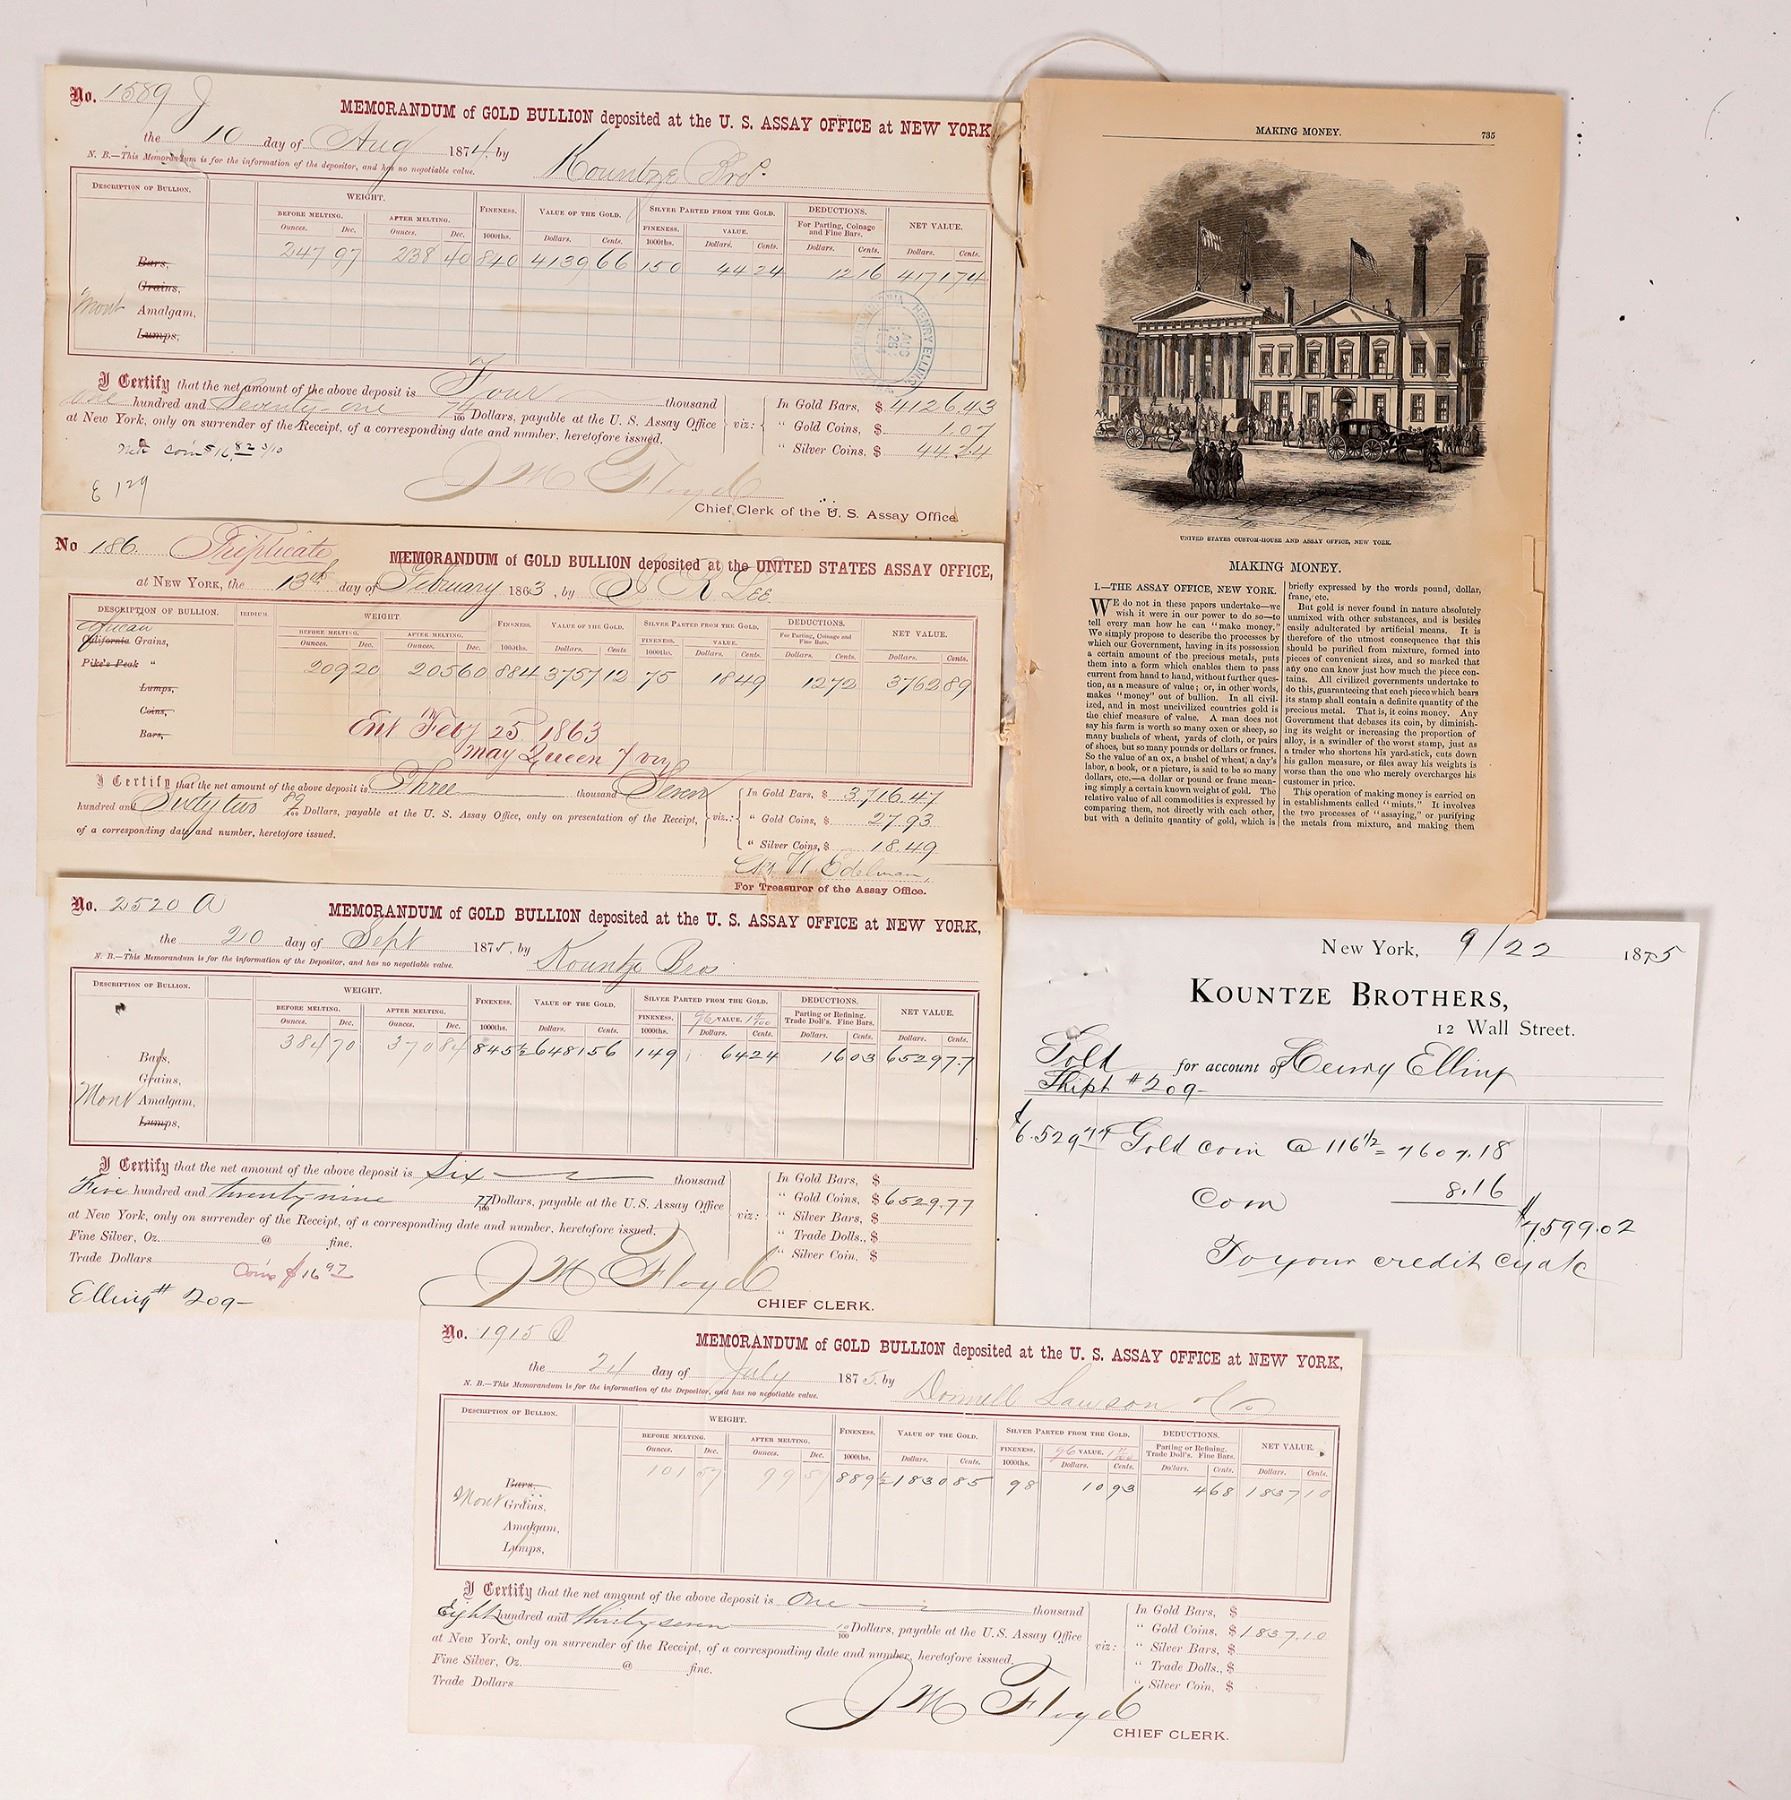 No. 1589 J
MEMORANDUM of GOLD BULLION deposited at the U. S. ASSAY OFFICE at NEW YORK,
the 10 day of Aug 1874. by Kountze Bros.
N. B.—This Memorandum is for the information of the depositor, and has no negotiable value.
DESCRIPTION OF BULLION. WEIGHT. FINENESS. VALUE OF THE GOLD. SILVER PARTED FROM THE GOLD. DEDUCTIONS. NET VALUE.
BEFORE MELTING. AFTER MELTING. FINENESS. VALUE. For Parting, Coinage and Fine Bars.
Ounces. Dec. Ounces. Dec. 1000ths. Dollars. Cents. 1000ths. Dollars. Cents. Dollars. Cents. Dollars. Cents.
247 97 238 40 840 4139 66 150 44 24 12 16 4171 74
Bars,
Grains,
Mont Amalgam,
Lumps,
HENRY ELLING
AUG 26
I Certify that the net amount of the above deposit is Four thousand
one hundred and Seventy-one 74/100 Dollars, payable at the U. S. Assay Office
at New York, only on surrender of the Receipt, of a corresponding date and number, heretofore issued.
viz: In Gold Bars, $ 4126.43
" Gold Coins, $ 1.07
" Silver Coins, $ 44.24
E 129
J M Floyd
Chief Clerk of the U. S. Assay Office.
No 186. Triplicate
MEMORANDUM of GOLD BULLION deposited at the UNITED STATES ASSAY OFFICE,
at NEW YORK, the 13th day of February 1863, by J R Lee
DESCRIPTION OF BULLION. IRIDIUM. WEIGHT. FINENESS. VALUE OF THE GOLD. SILVER PARTED FROM THE GOLD. DEDUCTIONS. NET VALUE.
BEFORE MELTING. AFTER MELTING. FINENESS. VALUE. For Parting, Coinage and Fine Bars.
Ounces. Dec. Ounces. Dec. 1000ths. Dollars. Cents 1000ths. Dollars. Cents. Dollars. Cents. Dollars. Cents.
African
California Grains,
Pike's Peak "
209 20 205 60 884 3757 12 75 18 49 12 72 3762 89
Lumps,
Coins,
Bars,
Ent Feby 25 1863
May Queen 7
I Certify that the net amount of the above deposit is Three thousand Seven
hundred and Sixty two 89/100 Dollars, payable at the U. S. Assay Office, only on presentation of the Receipt,
of a corresponding date and number, heretofore issued.
viz.: In Gold Bars, $ 3716.47
" Gold Coins, $ 27.93
" Silver Coins, $ 18.49
W Edelman,
For Treasurer of the Assay Office.
No. 2520 A
MEMORANDUM of GOLD BULLION deposited at the U. S. ASSAY OFFICE at NEW YORK,
the 20 day of Sept 1875, by Kountze Bros
N. B.—This Memorandum is for the information of the Depositor, and has no negotiable value.
DESCRIPTION OF BULLION. WEIGHT. FINENESS. VALUE OF THE GOLD. SILVER PARTED FROM THE GOLD. DEDUCTIONS. NET VALUE.
BEFORE MELTING. AFTER MELTING. FINENESS. 96 VALUE. Parting or Refining. Trade Doll's. Fine Bars.
Ounces. Dec. Ounces. Dec. 1000ths. Dollars. Cents. 1000ths. Dollars. Cents. Dollars. Cents. Dollars. Cents.
384 70 370 84 845½ 6481 56 149 64 24 16 03 6529 77
Bars,
Grains,
Mont Amalgam,
Lumps,
I Certify that the net amount of the above deposit is Six thousand
Five hundred and twenty nine 77/100 Dollars, payable at the U. S. Assay Office
at New York, only on surrender of the Receipt, of a corresponding date and number, heretofore issued.
Fine Silver, Oz. @ fine.
Trade Dollars
viz: In Gold Bars, $
" Gold Coins, $ 6529.77
" Silver Bars, $
" Trade Dolls., $
" Silver Coin, $
Coin $16 97
Elling # 209-
J M Floyd
CHIEF CLERK.
MAKING MONEY. 735
UNITED STATES CUSTOM-HOUSE AND ASSAY OFFICE, NEW YORK.
MAKING MONEY.
I.—THE ASSAY OFFICE, NEW YORK.
WE do not in these papers undertake—we
wish it were in our power to do so—to
tell every man how he can "make money."
We simply propose to describe the processes by
which our Government, having in its possession
a certain amount of the precious metals, puts
them into a form which enables them to pass
current from hand to hand, without further question,
as a measure of value; or, in other words,
makes "money" out of bullion. In all civilized,
and in most uncivilized countries gold is
the chief measure of value. A man does not
say his farm is worth so many oxen or sheep, so
many bushels of wheat, yards of cloth, or pairs
of shoes, but so many pounds or dollars or francs.
So the value of an ox, a bushel of wheat, a day's
labor, a book, or a picture, is said to be so many
dollars, etc.—a dollar or pound or franc meaning
simply a certain known weight of gold. The
relative value of all commodities is expressed by
comparing them, not directly with each other,
but with a definite quantity of gold, which is
briefly expressed by the words pound, dollar,
franc, etc.
But gold is never found in nature absolutely
unmixed with other substances, and is besides
easily adulterated by artificial means. It is
therefore of the utmost consequence that this
should be purified from mixture, formed into
pieces of convenient sizes, and so marked that
any one can know just how much the piece contains.
All civilized governments undertake to
do this, guaranteeing that each piece which bears
its stamp shall contain a definite quantity of the
precious metal. That is, it coins money. Any
Government that debases its coin, by diminishing
its weight or increasing the proportion of
alloy, is a swindler of the worst stamp, just as
a trader who shortens his yard-stick, cuts down
his gallon measure, or files away his weights is
worse than the one who merely overcharges his
customer in price.
This operation of making money is carried on
in establishments called "mints." It involves
the two processes of "assaying," or purifying
the metals from mixture, and making them
New York, 9/22 1875
KOUNTZE BROTHERS,
12 Wall Street.
Sold for account of Henry Elling
Shipt #209-
$6.529 77 Gold coin @ 116 1/2 = 7607.18
Com 8.16
$7599.02
To your credit
No. 1915 B
MEMORANDUM of GOLD BULLION deposited at the U. S. ASSAY OFFICE at NEW YORK,
the 24 day of July 1875. by Donnell Lawson & Co
N. B.—This Memorandum is for the information of the Depositor, and has no negotiable value.
DESCRIPTION OF BULLION. WEIGHT. FINENESS. VALUE OF THE GOLD. SILVER PARTED FROM THE GOLD. DEDUCTIONS. NET VALUE.
BEFORE MELTING. AFTER MELTING. FINENESS. 96 VALUE. Parting or Refining. Trade Doll's. Fine Bars.
Ounces. Dec. Ounces. Dec. 1000ths. Dollars. Cents. 1000ths. Dollars. Cents. Dollars. Cents. Dollars. Cents.
101 57 99 57 889½ 1830 85 98 10 93 4 68 1837 10
Bars,
Mont Grains,
Amalgam,
Lumps,
I Certify that the net amount of the above deposit is One thousand
Eight hundred and thirty seven 10/100 Dollars, payable at the U. S. Assay Office
at New York, only on surrender of the Receipt, of a corresponding date and number, heretofore issued.
Fine Silver, Oz. @ fine.
Trade Dollars
viz: In Gold Bars, $
" Gold Coins, $ 1837.10
" Silver Bars, $
" Trade Dolls., $
" Silver Coin, $
J M Floyd
CHIEF CLERK.